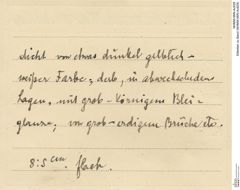 dicht von etwas dunkel gelblich-
weißer Farbe; derb, in abwechselnden
Lagen, mit grob-körnigem Blei-
glanze, von grob-erdigem Bruche etc.
8:5 cm. flach.